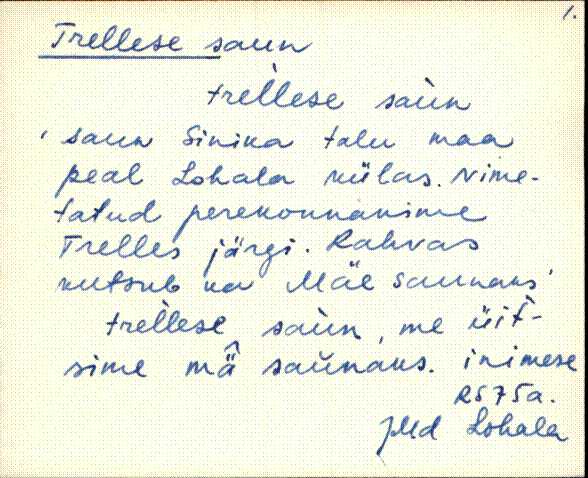 1.
Trellese saun
trèllese saùn
'saun Sinika talu maa
peal Lohala külas. Nime-
tatud perekonnanime
Trelles järgi. Rahvas
kutsub ka Mäe saunaks'
trèllese saùn, me üit̀-
sime mä̂ saǔnaks. inimese
RS 75a.
JMd Lohala